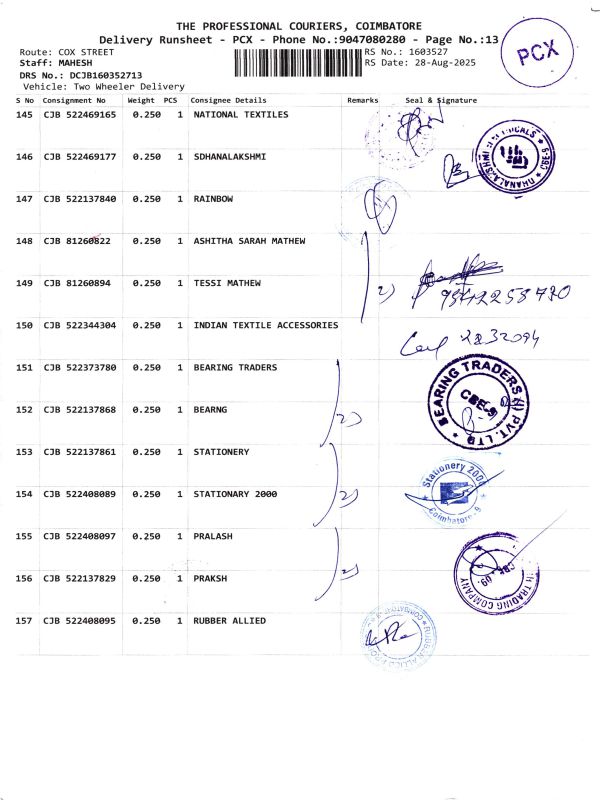 THE PROFESSIONAL COURIERS, COIMBATORE
Delivery Runsheet - PCX - Phone No.:9047080280 - Page No.:13
PCX
Route: COX STREET RS No.: 1603527
Staff: MAHESH RS Date: 28-Aug-2025
DRS No.: DCJB160352713
Vehicle: Two Wheeler Delivery
S No Consignment No Weight PCS Consignee Details Remarks Seal & Signature
145 CJB 522469165 0.250 1 NATIONAL TEXTILES
146 CJB 522469177 0.250 1 SDHANALAKSHMI
147 CJB 522137840 0.250 1 RAINBOW
148 CJB 81260822 0.250 1 ASHITHA SARAH MATHEW
149 CJB 81260894 0.250 1 TESSI MATHEW 2)
150 CJB 522344304 0.250 1 INDIAN TEXTILE ACCESSORIES
151 CJB 522373780 0.250 1 BEARING TRADERS
BEARING TRADERS (I) PVT. LTD
CBE-9
152 CJB 522137868 0.250 1 BEARNG 2)
153 CJB 522137861 0.250 1 STATIONERY
Stationery 2000
Coimbatore-9
154 CJB 522408089 0.250 1 STATIONARY 2000 2)
155 CJB 522408097 0.250 1 PRALASH
156 CJB 522137829 0.250 1 PRAKSH 2)
TRADING COMPANY
157 CJB 522408095 0.250 1 RUBBER ALLIED